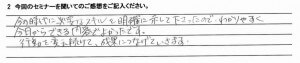 2 今回のセミナーを聞いてのご感想をご記入ください。
今の時代に必要なスキルを明確に示して下さったので、わかりやすく
今日からできる内容でよかったです。
行動を変え続けて、成果につなげていきます。